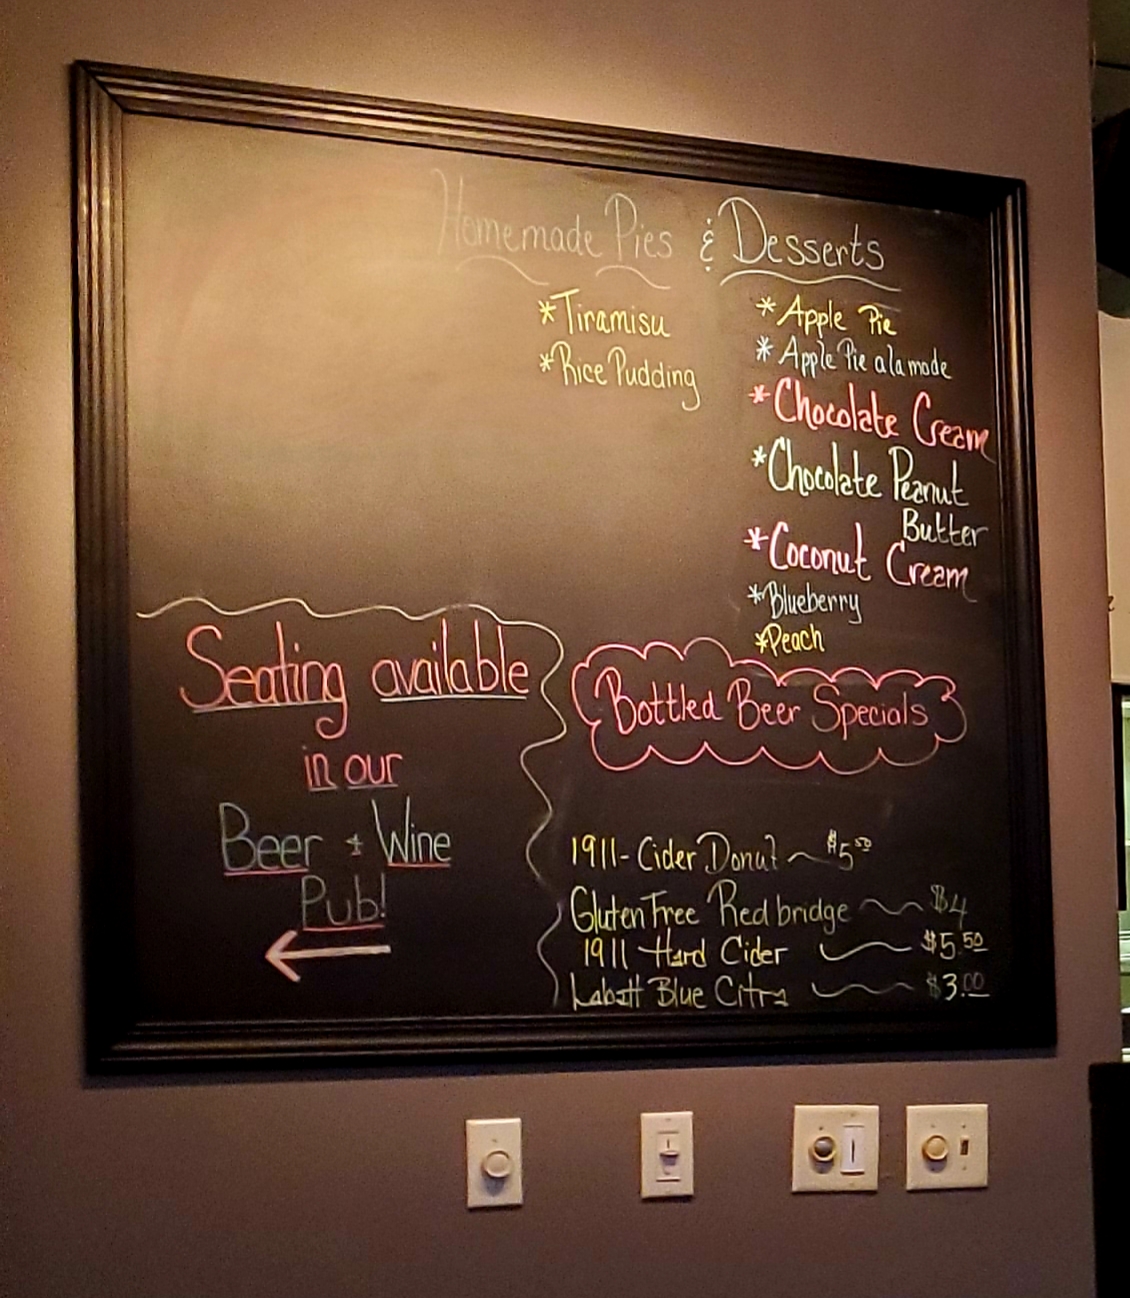 Homemade Pies & Desserts
*Tiramisu
*Rice Pudding
*Apple Pie
*Apple Pie alamode
*Chocolate Cream
*Chocolate Peanut
Butter
*Coconut Cream
*Blueberry
*Peach
Seating available
in our
Beer + Wine
Pub!
Bottled Beer Specials
1911- Cider Donut ~ $5.50
Gluten Free Redbridge ~ $4
1911 Hard Cider ~ $5.50
Labatt Blue Citra ~ $3.00